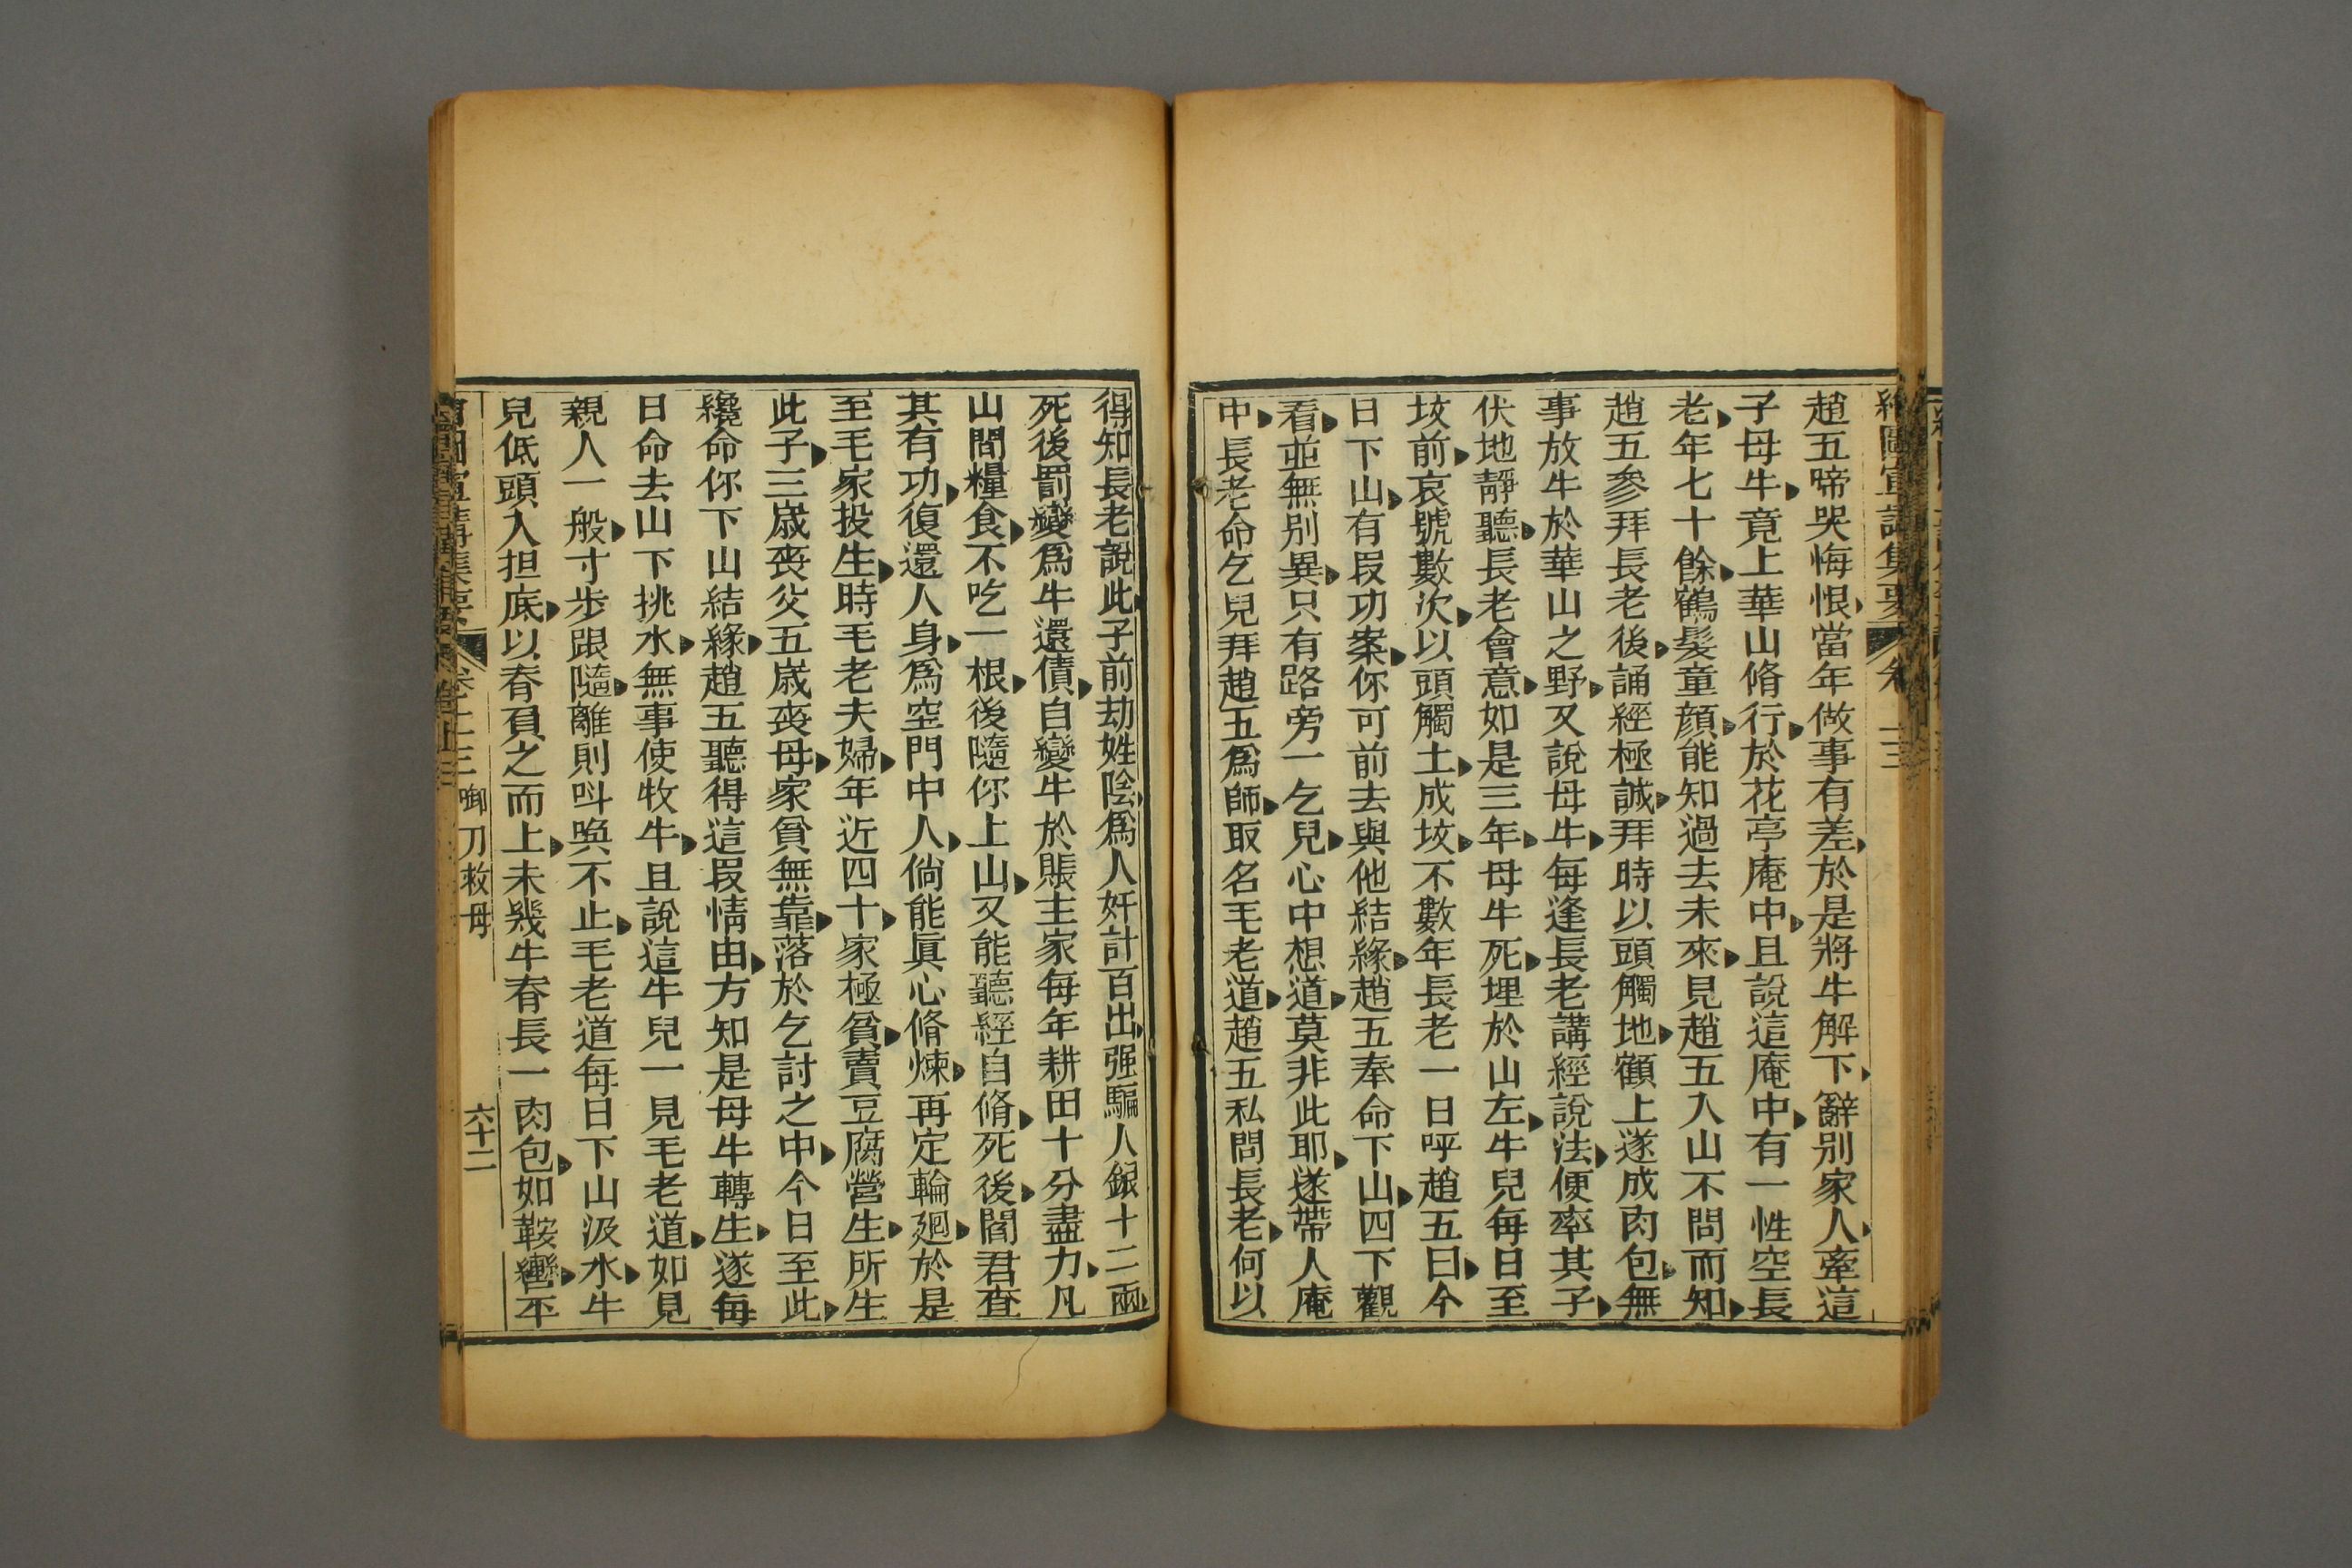 繪圖宣講集要 卷十三
趙五啼哭悔恨當年做事有差於是將牛解下辭别家人牽這
子母牛竟上華山脩行於花亭庵中且說這庵中有一性空長
老年七十餘鶴髮童顔能知過去未來見趙五入山不問而知
趙五參拜長老後誦經極誠拜時以頭觸地顱上遂成肉包無
事放牛於華山之野又說母牛每逢長老講經說法便率其子
伏地靜聽長老會意如是三年母牛死埋於山左牛兒每日至
坟前哀號數次以頭觸土成坟不數年長老一日呼趙五曰今
日下山有叚功案你可前去與他結緣趙五奉命下山四下觀
看並無别異只有路旁一乞兒心中想道莫非此耶遂帶人庵
中長老命乞兒拜趙五爲師取名毛老道趙五私問長老何以
得知長老說此子前劫姓陰爲人奸計百出强騙人銀十二兩
死後罰變爲牛還債自變牛於賬主家每年耕田十分盡力凡
山間糧食不吃一根後隨你上山又能聽經自脩死後閻君查
其有功復還人身爲空門中人倘能眞心脩煉再定輪廻於是
至毛家投生時毛老夫婦年近四十家極貧賣豆腐營生所生
此子三歲喪父五歲喪母家貧無靠落於乞討之中今日至此
纔命你下山結緣趙五聽得這叚情由方知是母牛轉生遂每
日命去山下挑水無事使牧牛且說這牛兒一見毛老道如見
親人一般寸步跟隨離則呌喚不止毛老道每日下山汲水牛
兒低頭入担底以脊負之而上未幾牛脊長一肉包如鞍轡平
宣講集要 卷十三 啣刀救母 六十二